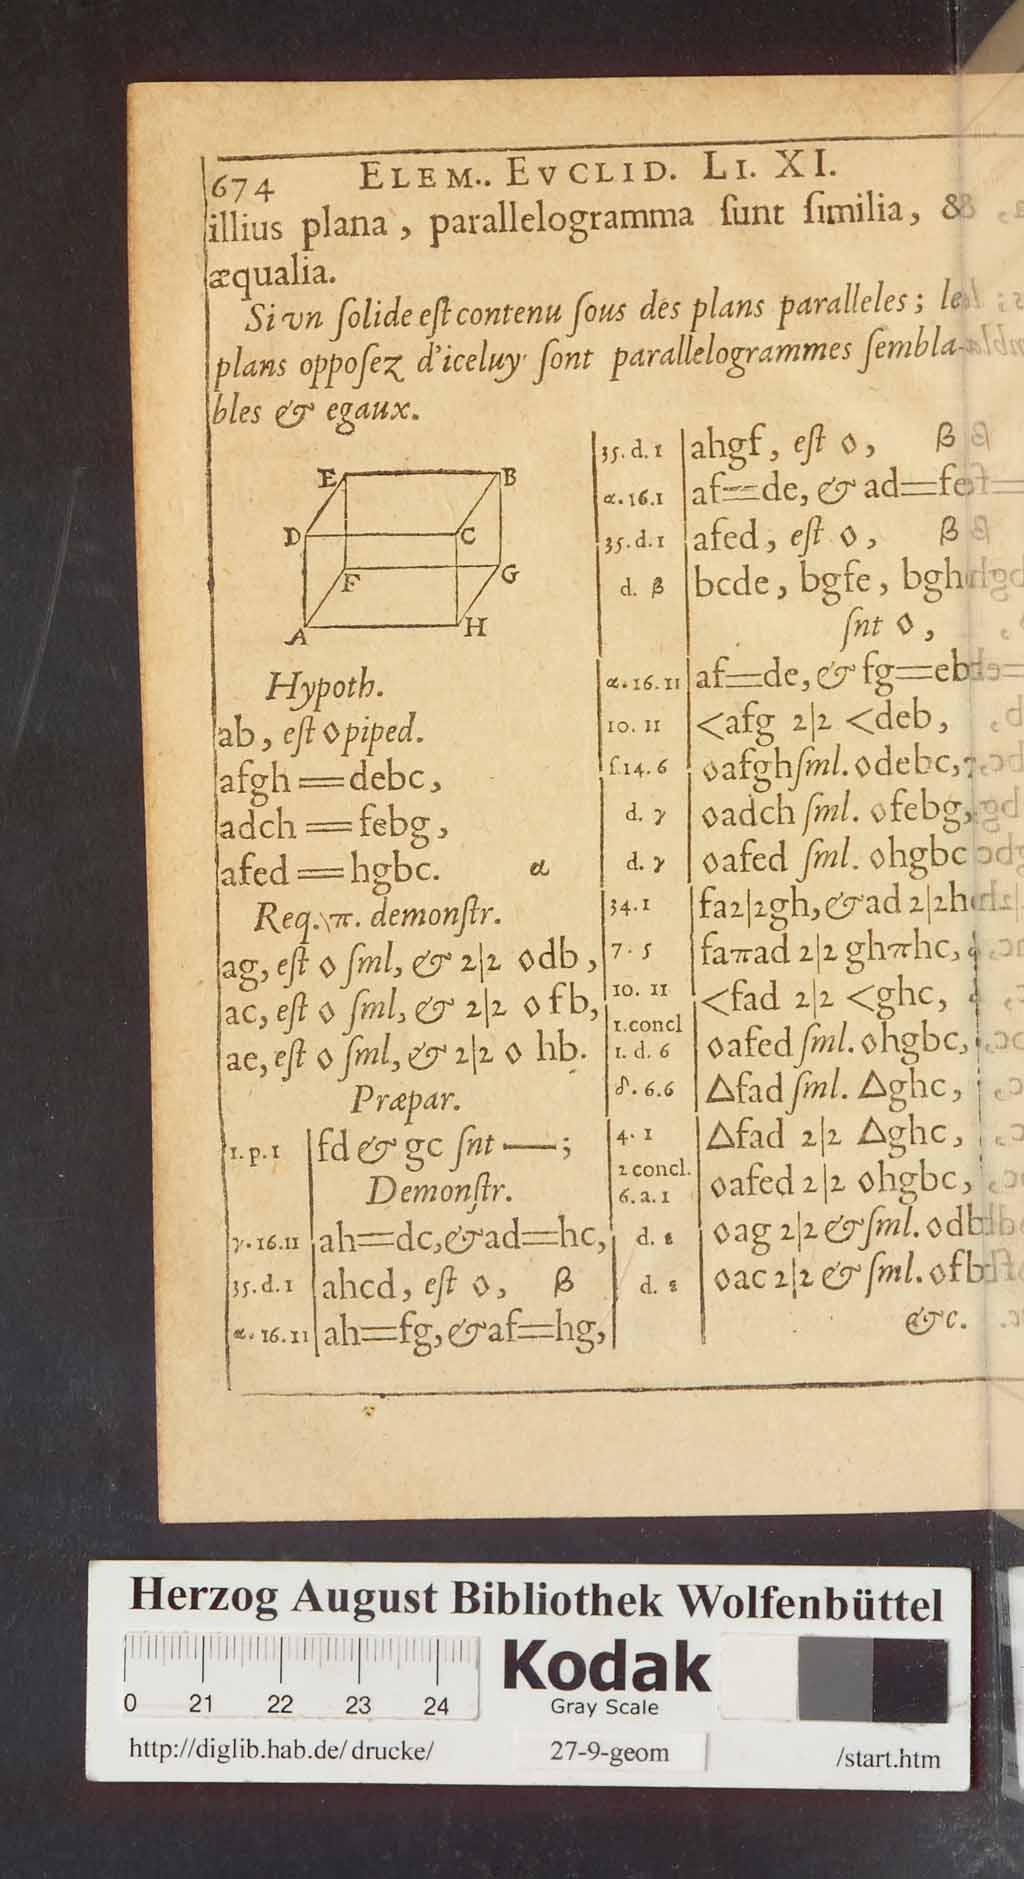 674 ELEM.. EVCLID. LI. XI.
illius plana, parallelogramma ſunt ſimilia, &
æqualia.
Si vn ſolide eſt contenu ſous des plans paralleles; les
plans oppoſez d'iceluy ſont parallelogrammes ſembla-
bles & egaux.
E B
D C
F G
A H
Hypoth.
ab, eſt ◊ piped.
afgh == debc,
adch == febg,
afed == hgbc. α
Req. π. demonſtr.
ag, eſt ◊ ſml, & 2|2 ◊db,
ac, eſt ◊ ſml, & 2|2 ◊ fb,
ae, eſt ◊ ſml, & 2|2 ◊ hb.
Præpar.
1. p. 1 fd & gc ſnt —;
Demonſtr.
γ. 16. 11 ah==dc, & ad==hc,
35. d. 1 ahcd, eſt ◊, β
α. 16. 11 ah==fg, & af==hg,
35. d. 1 ahgf, eſt ◊, β
α. 16. 1 af==de, & ad==fe
35. d. 1 afed, eſt ◊, β
d. β bcde, bgfe, bgh
ſnt ◊,
α. 16. 11 af==de, & fg==eb
10. 11 <afg 2|2 <deb,
f. 14. 6 ◊afgh ſml. ◊debc, γ
d. γ ◊adch ſml. ◊febg,
d. γ ◊afed ſml. ◊hgbc
34. 1 fa 2|2 gh, & ad 2|2 hc
7. 5 fa π ad 2|2 gh π hc,
10. 11 <fad 2|2 <ghc,
1. concl
1. d. 6 ◊afed ſml. ◊hgbc,
δ. 6. 6 △fad ſml. △ghc,
4. 1 △fad 2|2 △ghc,
2 concl.
6. a. 1 ◊afed 2|2 ◊hgbc,
d. ε ◊ag 2|2 & ſml. ◊db
d. ε ◊ac 2|2 & ſml. ◊fb
&c.
Herzog August Bibliothek Wolfenbüttel
Kodak
Gray Scale
0 21 22 23 24
http://diglib.hab.de/drucke/ 27-9-geom /start.htm